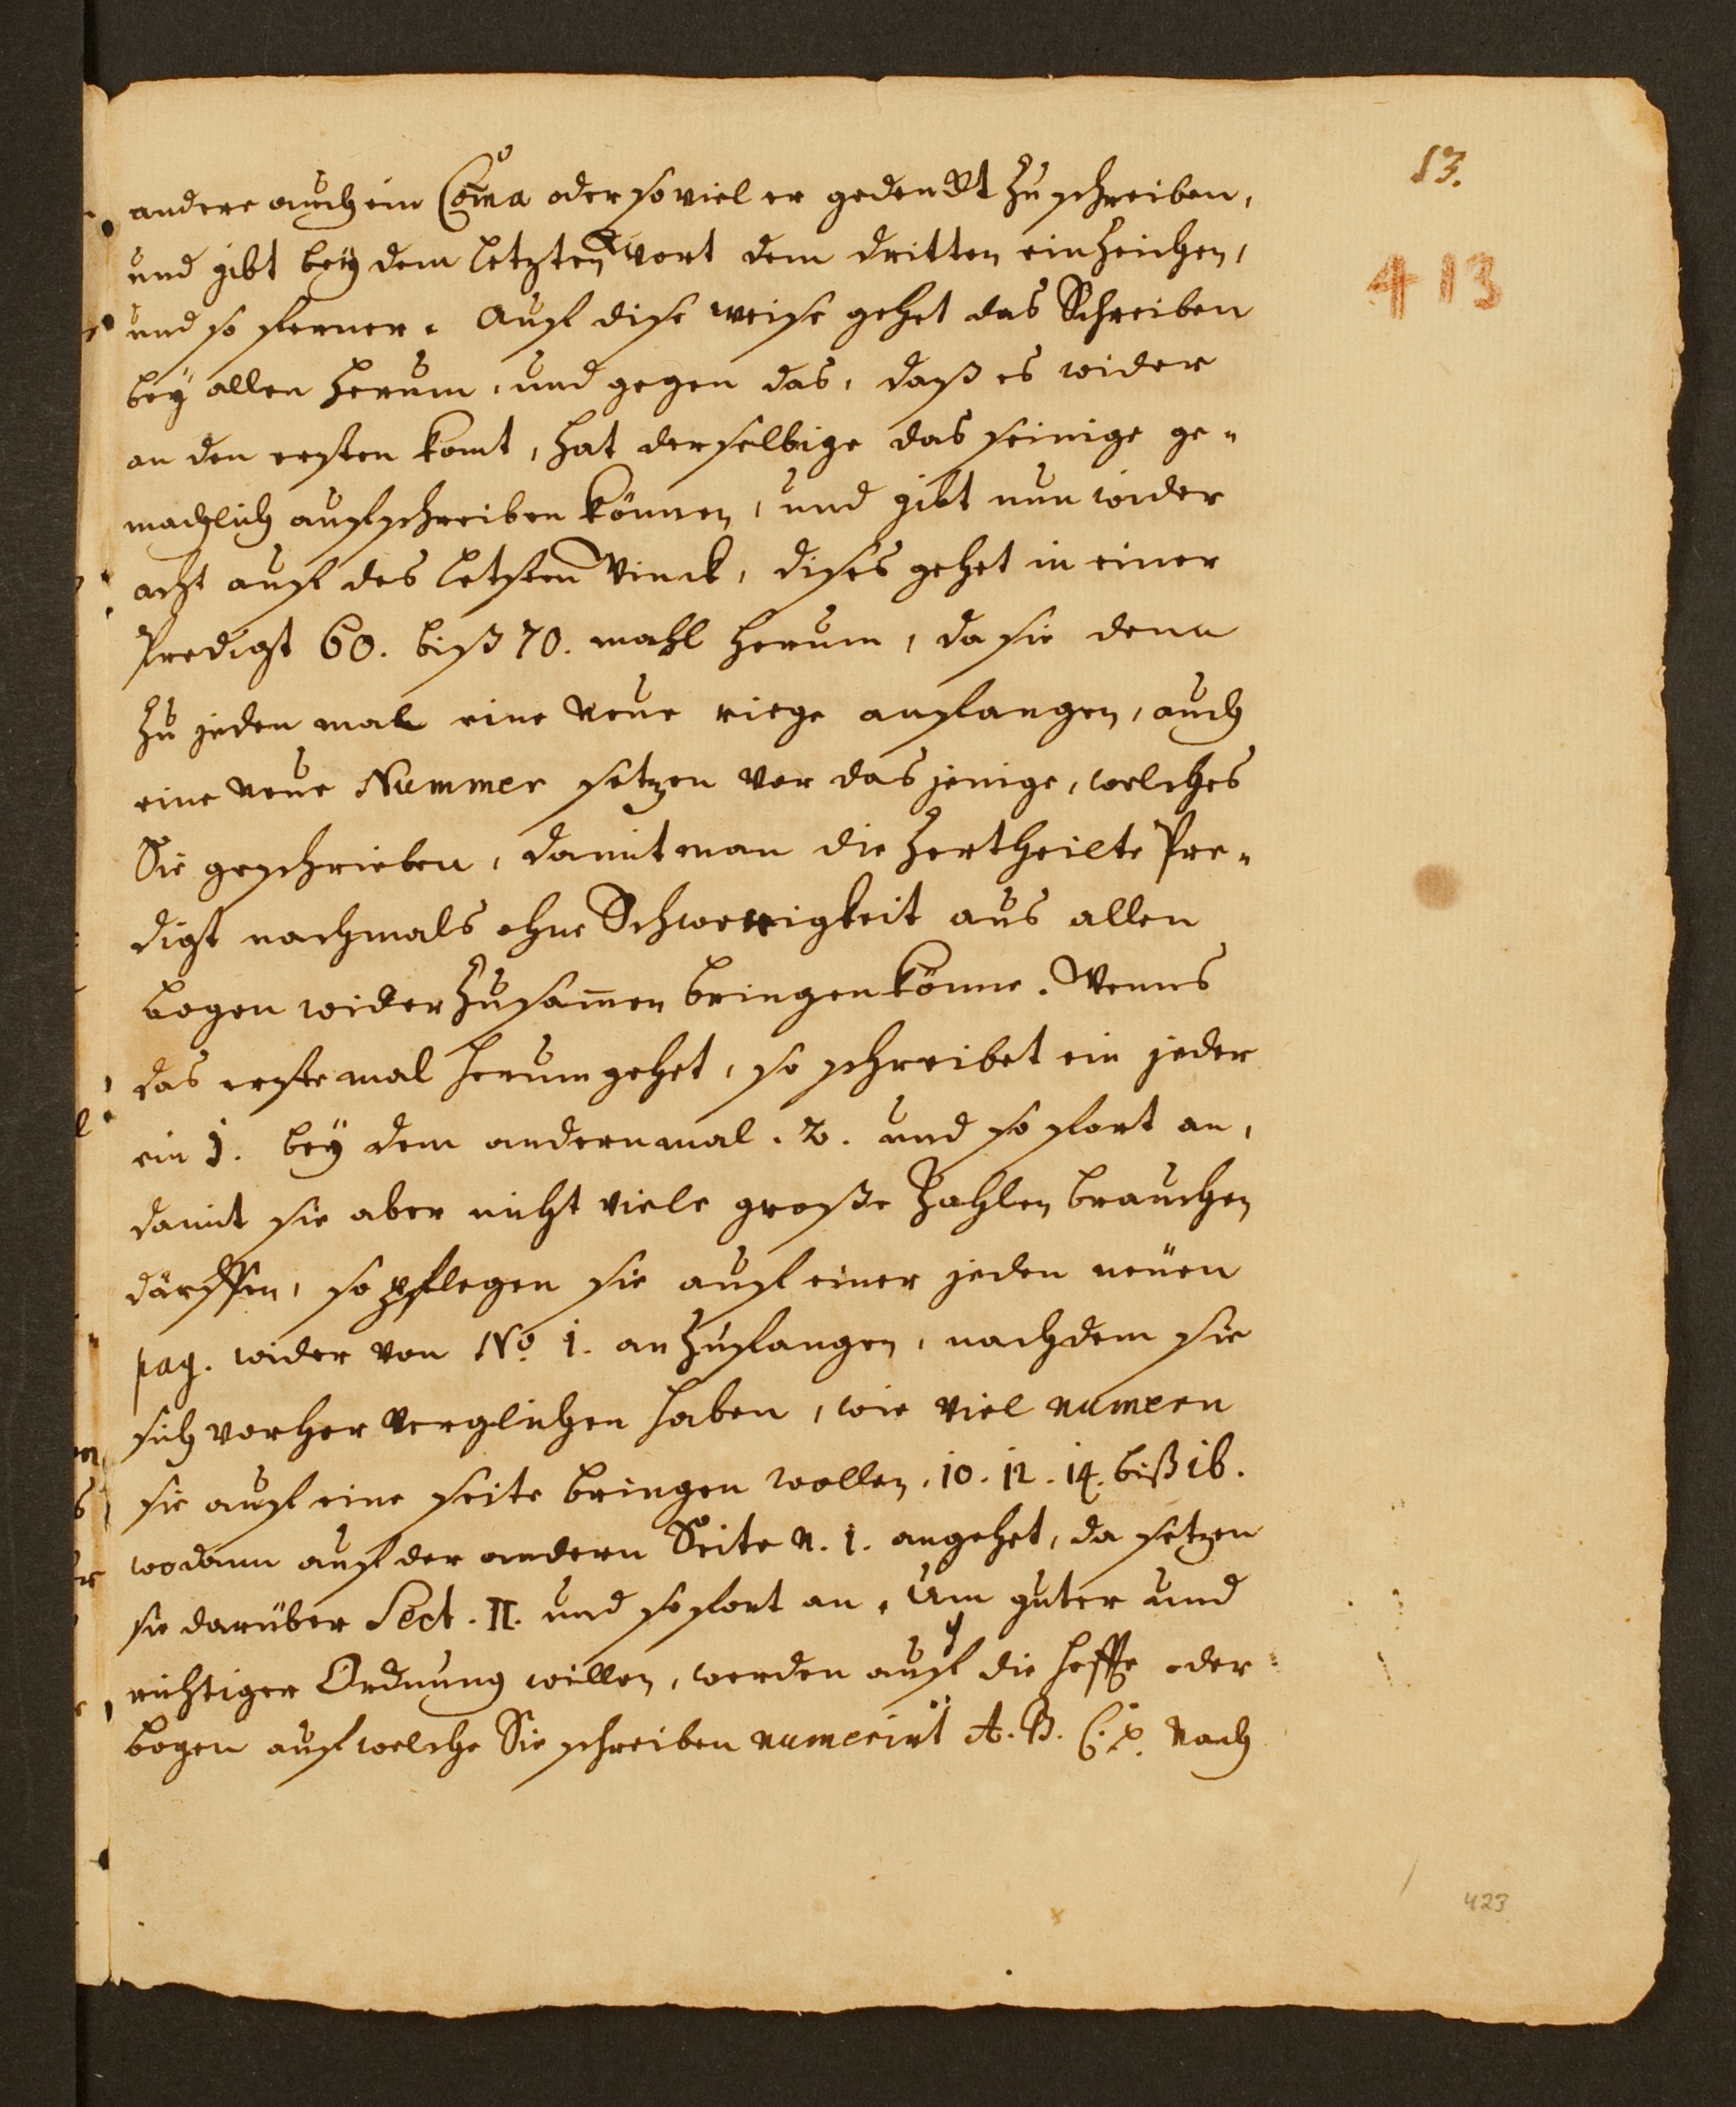 53.
413
andere auch ein Com̄a oder so viel er gedenckt zu schreiben,
und gibt bey dem letzten Wort dem dritten ein Zeichen,
und so ferner. Auf dise weise gehet das Schreiben
bey allen herum, und gegen das, daß es wider
an den ersten komt, hat derselbige das seinige ge-
machlich aufschreiben können, und gibt nun wider
acht auf des letsten Vinck, dises gehet in einer
Predigt 60. biß 70. mahl herum, da sie denn
zu jeden mal eine neue riege anfangen, auch
eine neue Nummer setzen vor das jenige, welches
Sie geschrieben, damit man die zertheilte Pre-
digt nachmals ohne Schwerigkeit aus allen
bogen wider zusam̄en bringen könne. Wenns
das erste mal herum gehet, so schreibet ein jeder
ein 1. bey dem andernmal. 2. und so fort an,
damit sie aber nicht viele große Zahlen brauchen
därffen, so pflegen sie auf einer jeden neuen
pag. wider von No. 1. anzufangen, nachdem sie
sich vorher verglichen haben, wie viel numern
sie auf eine seite bringen wollen, 10. 12. 14. biß 16.
wo dann auf der andern Seite N. 1. angehet, da setzen
sie darüber Sect. II. und so fort an. Um guter und
richtiger Ordnung willen, werden auf die heffte oder
bogen auf welche Sie schreiben numerirt A. B. C. x. Nach
423